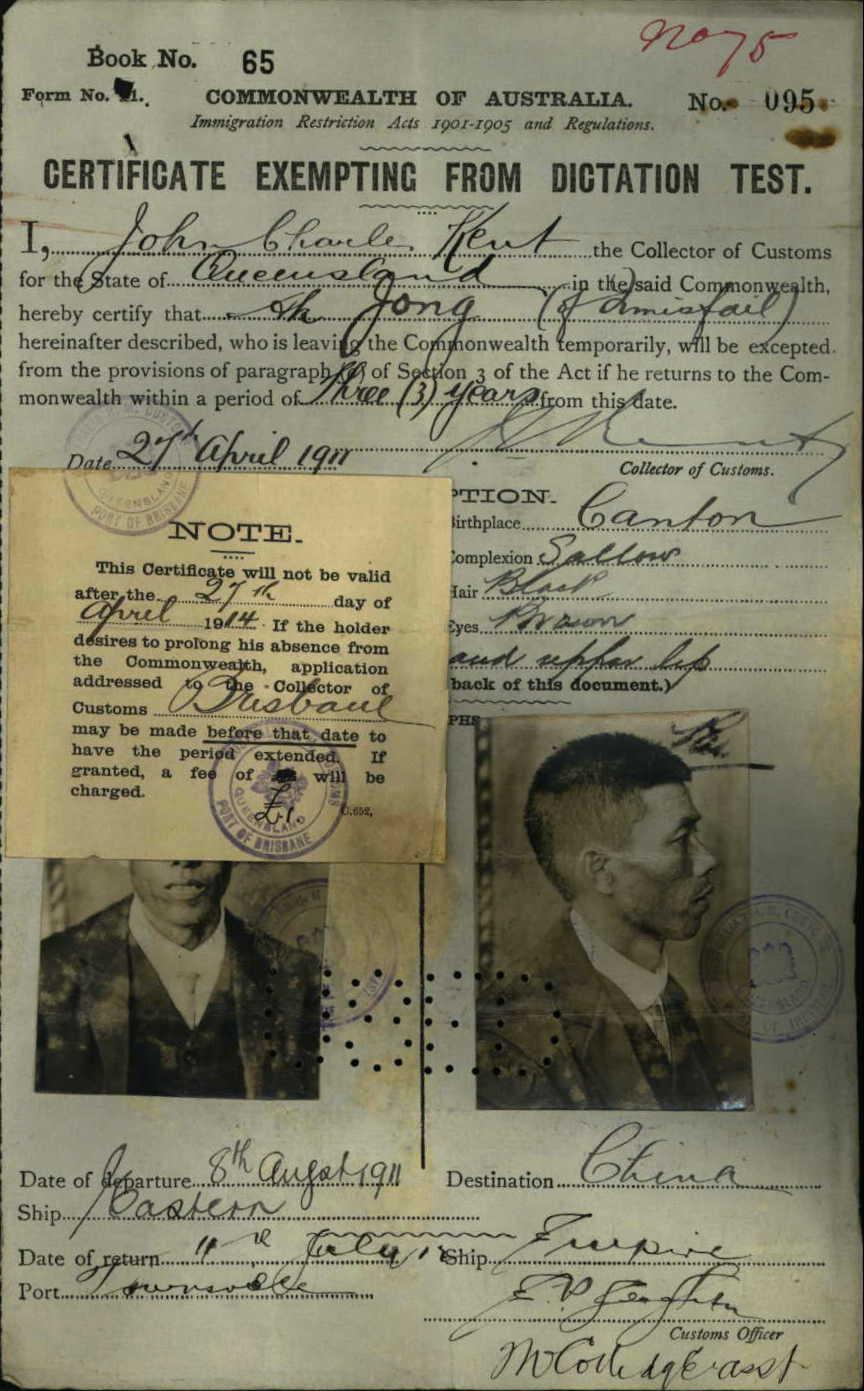 No 75
Book No. 65
Form No. 21.
COMMONWEALTH OF AUSTRALIA.
No. 095
Immigration Restriction Acts 1901-1905 and Regulations.
CERTIFICATE EXEMPTING FROM DICTATION TEST.
I, John Charles Kent the Collector of Customs
for the State of Queensland in the said Commonwealth,
hereby certify that Ah Jong (of Innisfail)
hereinafter described, who is leaving the Commonwealth temporarily, will be excepted
from the provisions of paragraph of Section 3 of the Act if he returns to the Com-
monwealth within a period of three (3) years from this date.
Date 27th April 1911
Collector of Customs.
NOTE.
This Certificate will not be valid
after the 27th day of
April 1914. If the holder
desires to prolong his absence from
the Commonwealth, application
addressed to the Collector of
Customs Brisbane
may be made before that date to
have the period extended. If
granted, a fee of will be
charged. £1.
C.652,
PORT OF BRISBANE
QUEENSLAND
PTION.
Birthplace Canton
Complexion Sallow
Hair Black
Eyes Brown
and upper lip
back of this document.)
PHS
Date of departure 8th August 1911
Destination China
Ship Eastern
Date of return 11 July
Ship Empire
Port Townsville
Customs Officer